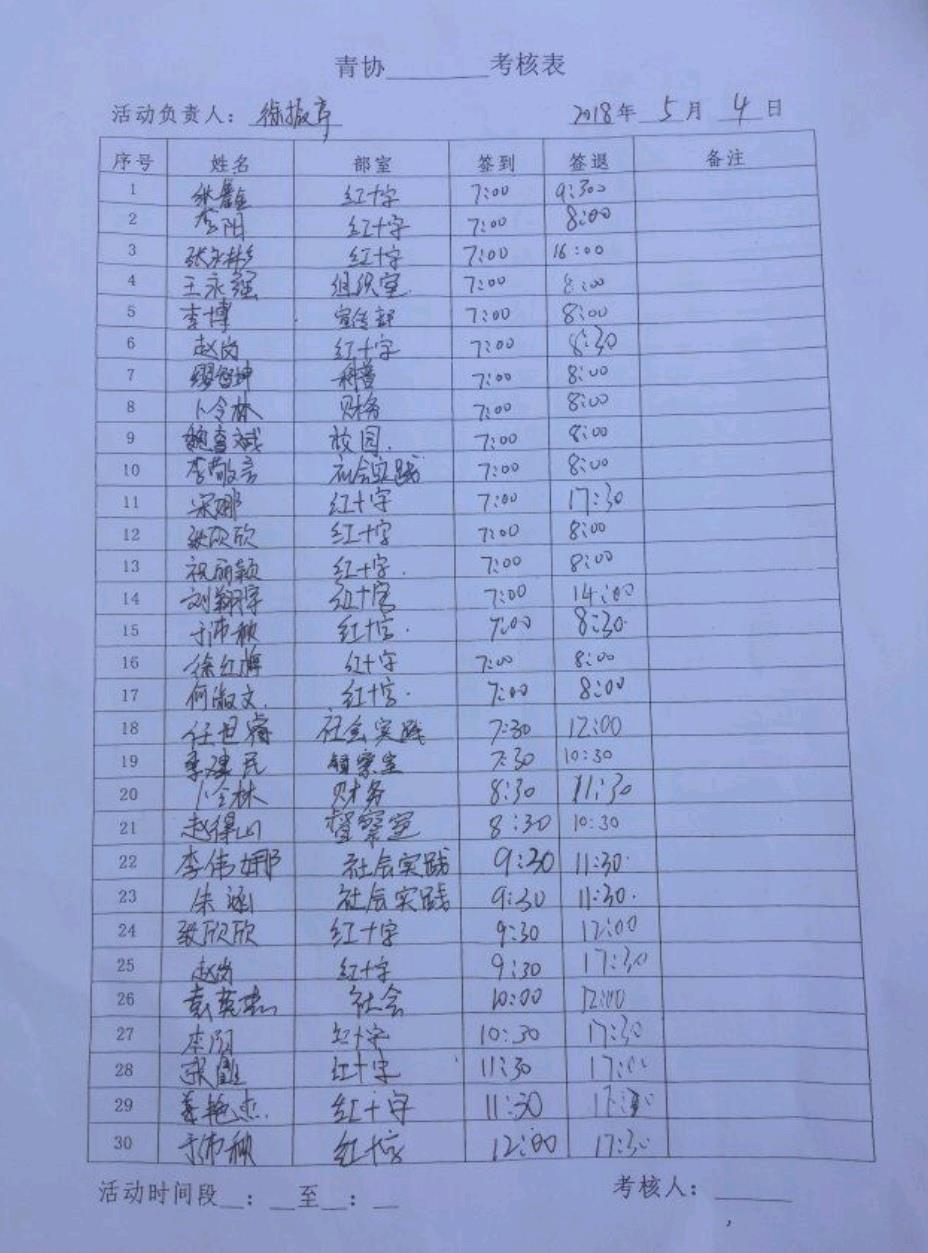 青协________考核表
活动负责人：徐振亭 2018年 5 月 4 日
序号 姓名 部室 签到 签退 备注
1 张鑫 红十字 7:00 9:300
2 李阳 红十字 7:00 8:00
3 张永彬 红十字 7:00 16:00
4 王永强 组织室 7:00 8:00
5 李博 宣传部 7:00 8:00
6 赵岗 红十字 7:00 8:30
7 缪智坤 科普 7:00 8:00
8 卜令林 财务 7:00 8:00
9 魏 校园. 7:00 8:00
10 李敬言 社会实践 7:00 8:00
11 宋娜 红十字 7:00 17:30
12 张欣欣 红十字 7:00 8:00
13 祝丽颖 红十字. 7:00 8:00
14 刘翔宇 红十字 7:00 14:00
15 于沛秧 红十字. 7:00 8:30
16 徐红梅 红十字 7:00 8:00
17 何淑文. 红十字. 7:00 8:00
18 任世睿 社会实践 7:30 12:00
19 季建民 督察室 7:30 10:30
20 卜令林 财务 8:30 11:30
21 赵得山 督察室 8:30 10:30
22 李伟娜 社会实践 9:30 11:30
23 朱涵 社会实践 9:30 11:30.
24 张欣欣 红十字 9:30 12:00
25 赵岗 红十字 9:30 17:30
26 袁英杰 社会 10:00 12:00
27 李阳 红十字 10:30 17:30
28 张 红十字 11:30 17:00
29 姜艳杰. 红十字 11:30
30 于沛秧 红十字 12:00 17:30
活动时间段__：__至__：__ 考核人：______